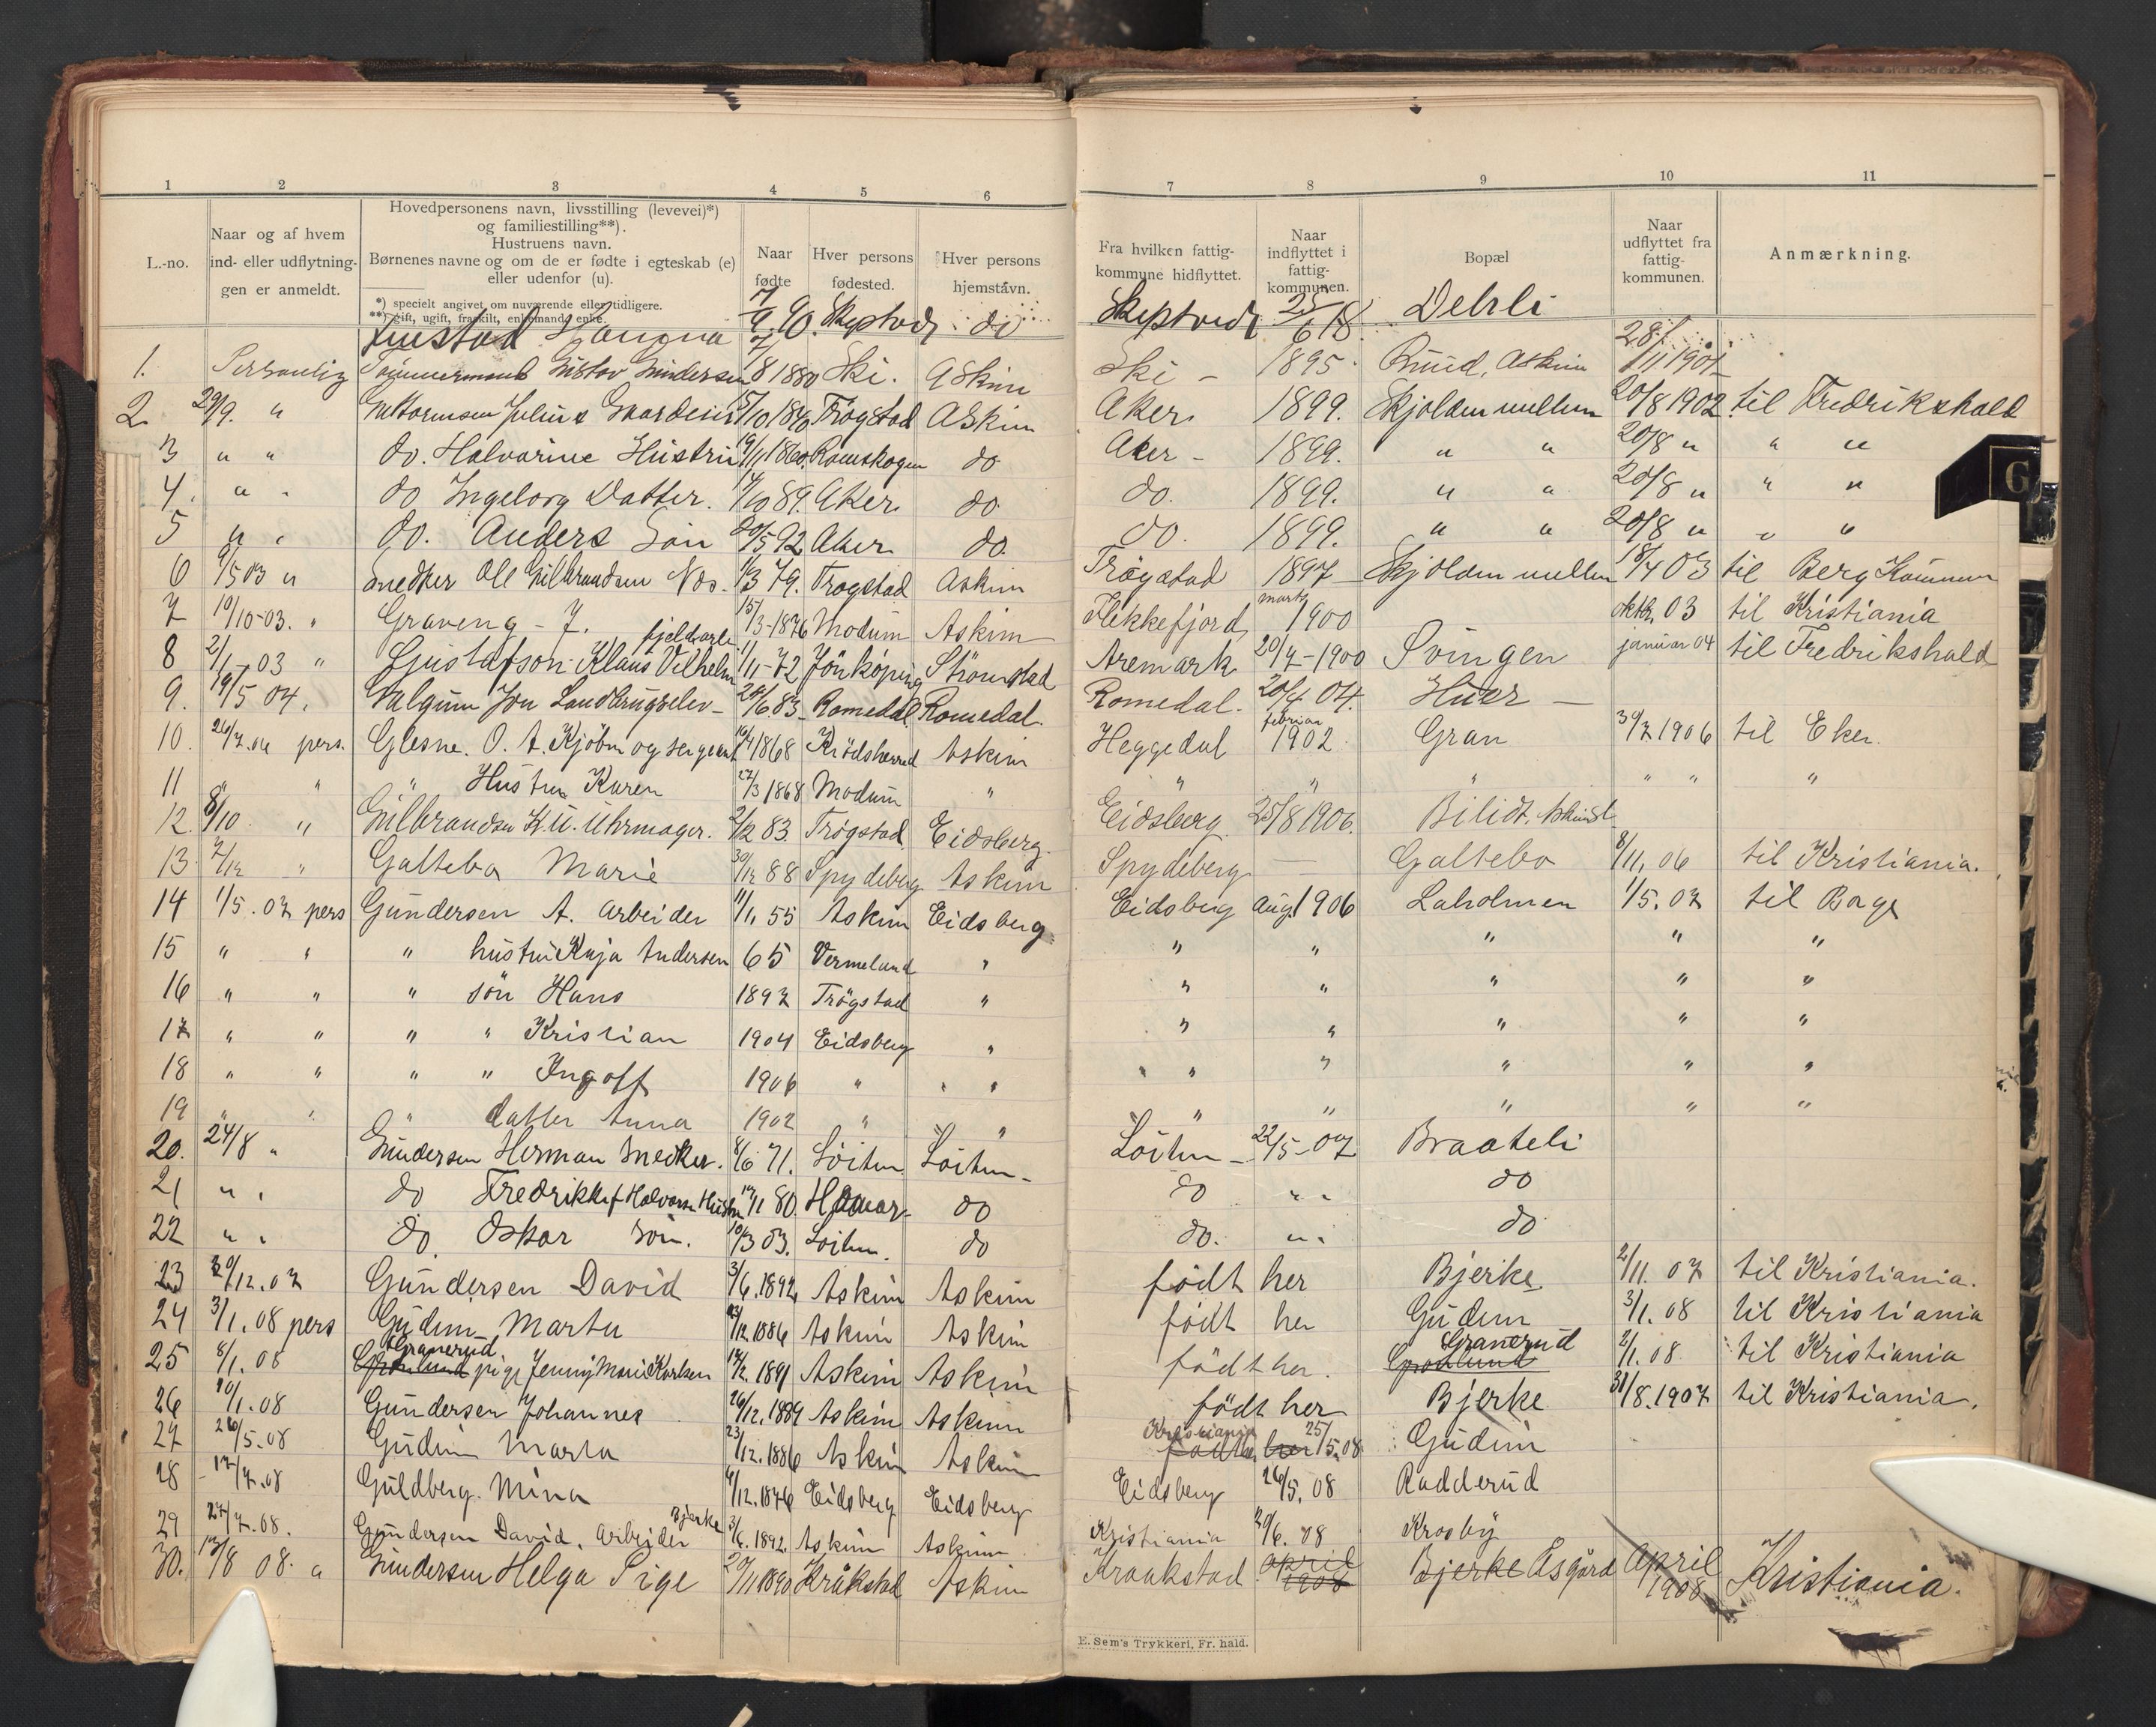 1 2 3 4 5 6 7 8 9 10 11
L.-no.
Naar og af hvem
ind- eller udflytnin-
gen er anmeldt.
Hovedpersonens navn, livsstilling (levevei)*)
og familiestilling**).
Hustruens navn.
Børnenes navne og om de er fødte i egteskab (e)
eller udenfor (u).
*) specielt angivet om nuværende eller tidligere.
**) gift, ugift, fraskilt, enkemand, enke.
Naar
fødte
Hver persons
fødested.
Hver persons
hjemstavn.
Fra hvilken fattig-
kommune hidflyttet.
Naar
indflyttet i
fattig-
kommunen.
Bopæl
Naar
udflyttet fra
fattig-
kommunen.
Anmærkning.
Hanna 90. do Skiptvedt 25/6 18
1. Personlig Tømmermand Gustav Gundersen 8 1880 Ski. Askim Ski - 1895 Ruud, Askim 28/11 1901
2. 29/9. " Julius 15/10 1840 Trøgstad Askim Aker 1899. Skjolden møllen 20/8 1902 til Fredrikshald
3 " " do. Halvorine Hustru 19/11 1860 Rømskogen do Aker - 1899. " " 20/8 " " "
4. " " do Ingeborg Datter. 17/10 89. Aker do do. 1899. " " 20/8 " " "
5 " " do. Anders Søn 20/5 92 Aker do. do. 1899. " " 20/8 " " "
6 9/5 03 " Snedker Ole Gulbrandsen 1/3 79. Trøgstad Askim Trøgstad 1897 Skjolden møllen 18/4 03 til Berg Kommune
7 10/10-03. " Graveng - J. 15/3-1876 Modum Askim Flekkefjord marts 1900 oktbr 03 til Kristiania
8 2/1-03 " Gustafson Klaus Vilhelm fjeldarb. 1/11-72 Jönköping Strömstad Aremark 20/4-1900 Svingen januar 04 til Fredrikshald
9. 19/5 04. Galgum Jon Landbrugselev - 28/6.83 Romedal Romedal. Romedal. 20/4 04. Huer -
10. 26/7.06 pers. Glesne. O. A. Kjøbm og sergeant 10/4 1868 Krödsherred Askim Heggedal februar 1902 Gran 30/7 1906 til Eker.
11 " " " Hustru Karen 27/3 1868 Modum " " " " " " "
12. 8/10 " Gulbrandsen K. U. Uhrmager. 2/12 83. Trøgstad Eidsberg Eidsberg 25/8 1906. Bilidt, Askim st
13 7/12 " Galtebo Marie 30/12 88 Spydeberg Askim Spydeberg — Galtebo 8/11, 06 til Kristiania.
14 1/5. 07 pers Gundersen A. Arbeider 11/11 55 Askim Eidsberg Eidsberg aug. 1906 Laholmen 1/5. 07 til Borge
15 " " " hustru Kaja Andersen 65 Vermeland " " " " " "
16 " " " søn Hans 1897 Trögstad " " " " " "
17 " " " " Kristian 1904 Eidsberg " " " " " "
18 " " " " Ingolf 1906 " " " " " " "
19 " " " datter Anna 1902 " " " " " " "
20. 24/8 " Gundersen Herman Snedker. 8/6 71. Löiten Löiten - Löiten - 22/5-07 Braateli
21 " " do Fredrikke f Halvorsen Hustru 17/11 80. Hamar - do do " " do
22 " " do. Oskar Søn. 10/3 03. Löiten. do do. " " do
23 30/12.07 Gundersen David 3/6.1892 Askim Askim født her Bjerke 2/11. 07 til Kristiania.
24 3/1.08 pers Gudim Marta 23/12 1886 Askim Askim født her Gudim 3/1.08 til Kristiania
25 8/1.08 Granerud pige Jenny Marie Karlsen 12/2. 1891 Askim Askim født her. Granerud 2/1.08 til Kristiania
26 10/1.08 Gundersen Johannes 26/12.1889 Askim Askim født her Bjerke 31/8.1907 til Kristiania.
27 26/5.08 Gudim Marta 23/12.1886 Askim Askim Kristiania født her 25/5.08 Gudim
28 17/7.08 Guldberg. Mina 4/12.1846 Eidsberg Eidsberg Eidsberg 26/5. 08 Radderud
29 27/7.08. Gundersen David, Arbeider Bjerke 3/6.1892. Askim Askim Kristiania 30/6.08 Krosby
30. 13/8 08. " Gundersen Helga Pige 20/11 1890 Kråkstad Askim Kraakstad april 1908 Bjerke Åsgård April 1908 Kristiania.
G
E. Sem's Trykkeri, Fr. hald.